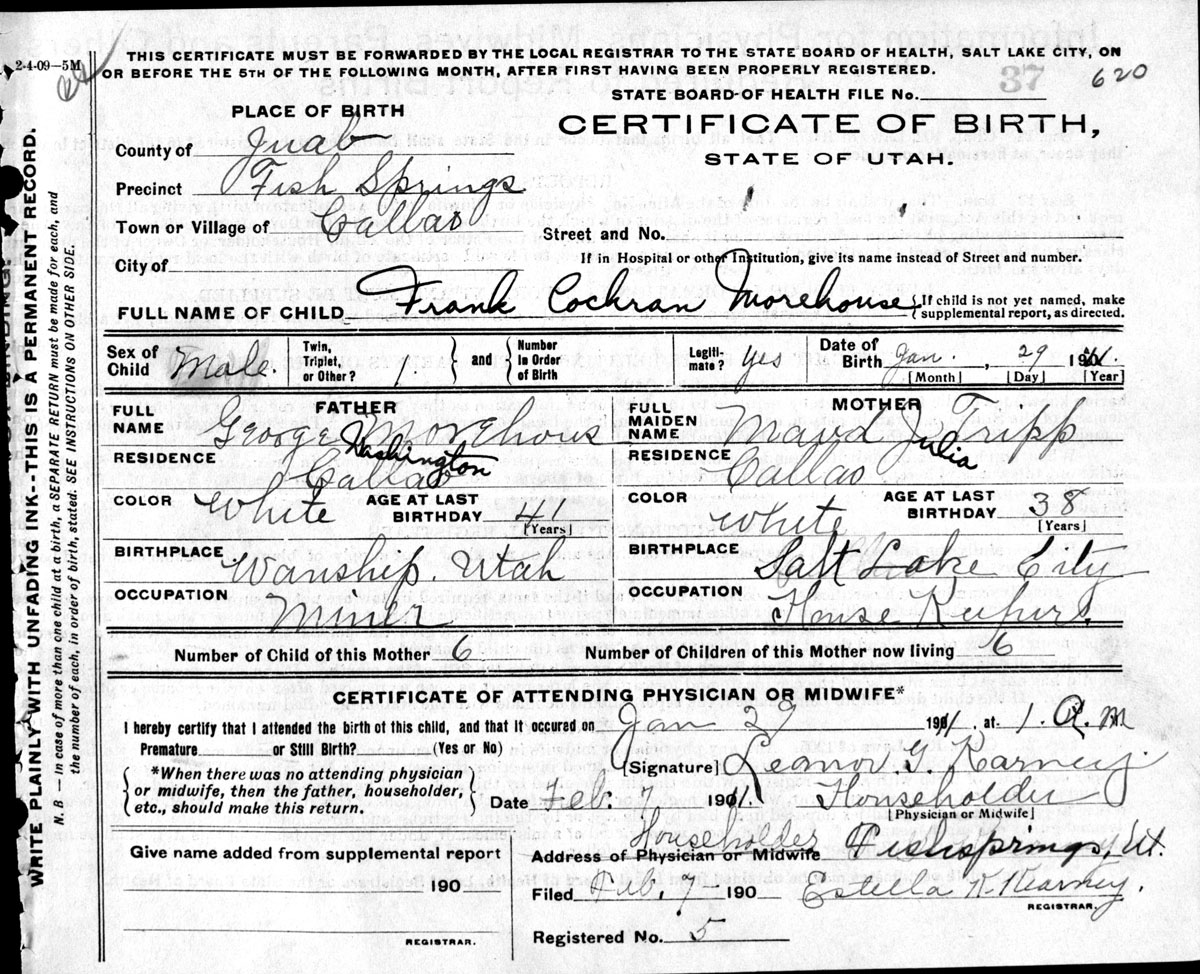 2-4-09—5M
THIS CERTIFICATE MUST BE FORWARDED BY THE LOCAL REGISTRAR TO THE STATE BOARD OF HEALTH, SALT LAKE CITY, ON
OR BEFORE THE 5TH OF THE FOLLOWING MONTH, AFTER FIRST HAVING BEEN PROPERLY REGISTERED.
37
620
STATE BOARD OF HEALTH FILE No.
PLACE OF BIRTH
CERTIFICATE OF BIRTH,
STATE OF UTAH.
County of Juab
Precinct Fish Springs
Town or Village of Callao
Street and No.
City of
If in Hospital or other Institution, give its name instead of Street and number.
FULL NAME OF CHILD Frank Cochran Morehouse { If child is not yet named, make
supplemental report, as directed.
Sex of Child Male. Twin, Triplet, or Other? 1. } and { Number in Order of Birth Legiti-mate? yes Date of Birth Jan. , 29 1911.
[Month] [Day] [Year]
FATHER
FULL NAME George Washington Morehous
RESIDENCE Callao
COLOR White AGE AT LAST BIRTHDAY 41 [Years]
BIRTHPLACE Wanship. Utah
OCCUPATION Miner
MOTHER
FULL MAIDEN NAME Maud Julia Tripp
RESIDENCE Callao
COLOR White AGE AT LAST BIRTHDAY 38 [Years]
BIRTHPLACE Salt Lake City
OCCUPATION House Keeper.
Number of Child of this Mother 6 Number of Children of this Mother now living 6
CERTIFICATE OF ATTENDING PHYSICIAN OR MIDWIFE*
I hereby certify that I attended the birth of this child, and that it occured on Jan 29 1911. at 1. A. M
Premature or Still Birth? (Yes or No)
[Signature] Leanor G. Karney
{ *When there was no attending physician
or midwife, then the father, householder,
etc., should make this return. }
Date Feb. 7 1911. Householder
[Physician or Midwife]
Householder
Address of Physician or Midwife Fishsprings, Ut.
Give name added from supplemental report
190
REGISTRAR.
Filed Feb. 7— 190 Estella K. Kearney.
REGISTRAR.
Registered No. 5
WRITE PLAINLY WITH UNFADING INK--THIS IS A PERMANENT RECORD.
N. B. — In case of more than one child at a birth, a SEPARATE RETURN must be made for each, and
the number of each, in order of birth, stated. SEE INSTRUCTIONS ON OTHER SIDE.